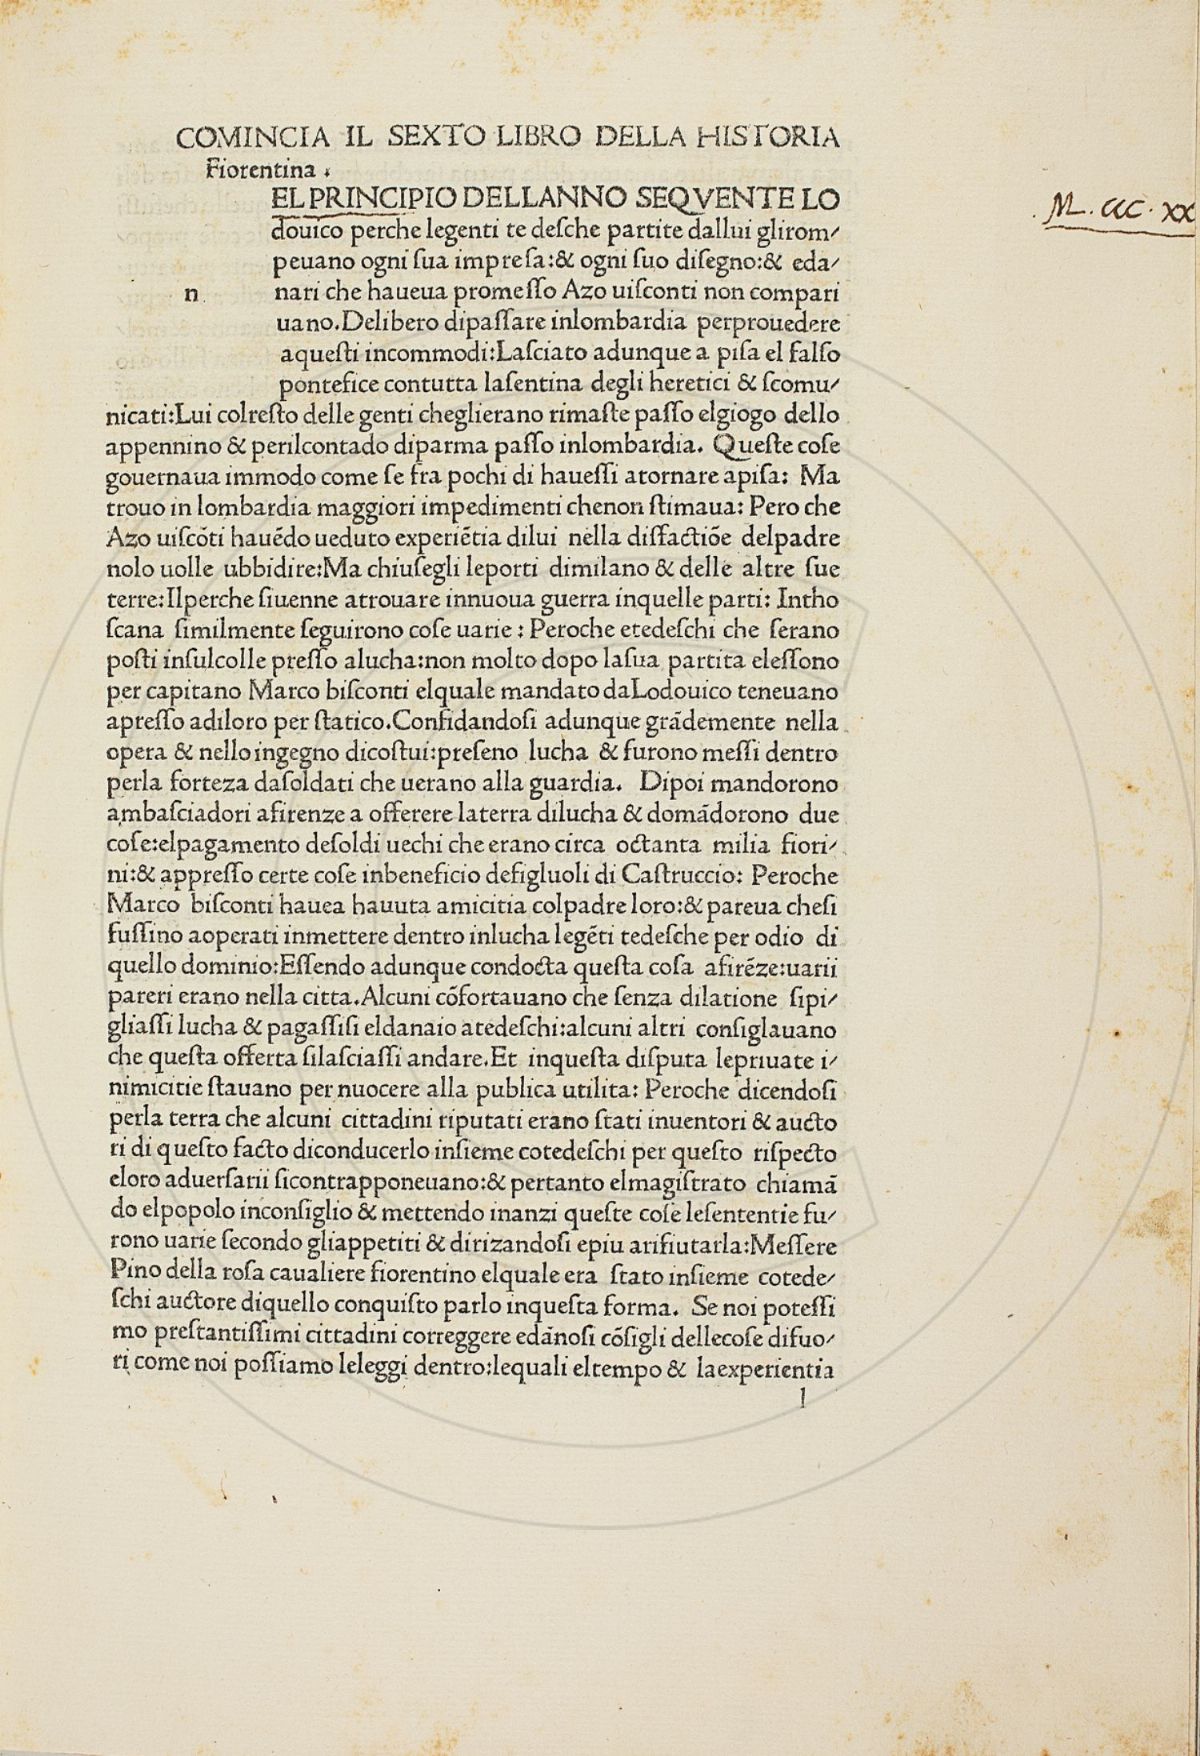 COMINCIA IL SEXTO LIBRO DELLA HISTORIA
Fiorentina .
EL PRINCIPIO DELLANNO SEQVENTE LO
douico perche legenti te deſche partite dallui glirom/
peuano ogni ſua impreſa:& ogni ſuo diſegno:& eda/
n nari che haueua promeſſo Azo uiſconti non compari
uano.Delibero dipaſſare inlombardia perprouedere
aqueſti incommodi:Laſciato adunque a piſa el falſo
pontefice contutta laſentina degli heretici & ſcomu/
nicati:Lui colreſto delle genti cheglierano rimaſte paſſo elgiogo dello
appennino & perilcontado diparma paſſo inlombardia. Queſte coſe
gouernaua immodo come ſe fra pochi di haueſſi atornare apiſa: Ma
trouo in lombardia maggiori impedimenti chenon ſtimaua: Pero che
Azo uiſcōti hauēdo ueduto experiētia dilui nella disfactiōe delpadre
nolo uolle ubbidire:Ma chiuſegli leporti dimilano & delle altre ſue
terre:Ilperche ſiuenne atrouare innuoua guerra inquelle parti: Intho
ſcana ſimilmente ſeguirono coſe uarie : Peroche etedeſchi che ſerano
poſti inſulcolle preſſo alucha:non molto dopo laſua partita eleſſono
per capitano Marco biſconti elquale mandato daLodouico teneuano
apreſſo adiloro per ſtatico.Confidandoſi adunque grādemente nella
opera & nello ingegno dicoſtui:preſeno lucha & furono meſſi dentro
perla forteza daſoldati che uerano alla guardia. Dipoi mandorono
ambaſciadori afirenze a offerere laterra dilucha & domādorono due
coſe:elpagamento deſoldi uechi che erano circa octanta milia fiori/
ni:& appreſſo certe coſe inbeneficio defigluoli di Caſtruccio: Peroche
Marco biſconti hauea hauuta amicitia colpadre loro:& pareua cheſi
fuſſino aoperati inmettere dentro inlucha legēti tedeſche per odio di
quello dominio:Eſſendo adunque condocta queſta coſa afirēze:uarii
pareri erano nella citta.Alcuni cōfortauano che ſenza dilatione ſipi/
gliaſſi lucha & pagaſſiſi eldanaio atedeſchi:alcuni altri conſiglauano
che queſta offerta ſilaſciaſſi andare.Et inqueſta diſputa lepriuate i/
nimicitie ſtauano per nuocere alla publica utilita: Peroche dicendoſi
perla terra che alcuni cittadini riputati erano ſtati inuentori & aucto
ri di queſto facto diconducerlo inſieme cotedeſchi per queſto riſpecto
eloro aduerſarii ſicontrapponeuano:& pertanto elmagiſtrato chiamā
do elpopolo inconſiglio & mettendo inanzi queſte coſe leſententie fu/
rono uarie ſecondo gliappetiti & dirizandoſi epiu arifiutarla:Meſſere
Pino della roſa caualiere fiorentino elquale era ſtato inſieme cotede/
ſchi auctore diquello conquiſto parlo inqueſta forma. Se noi poteſſi
mo preſtantiſſimi cittadini correggere edānoſi cōſigli dellecoſe difuo/
ri come noi poſſiamo leleggi dentro:lequali eltempo & laexperientia
l
M.CCC.XX